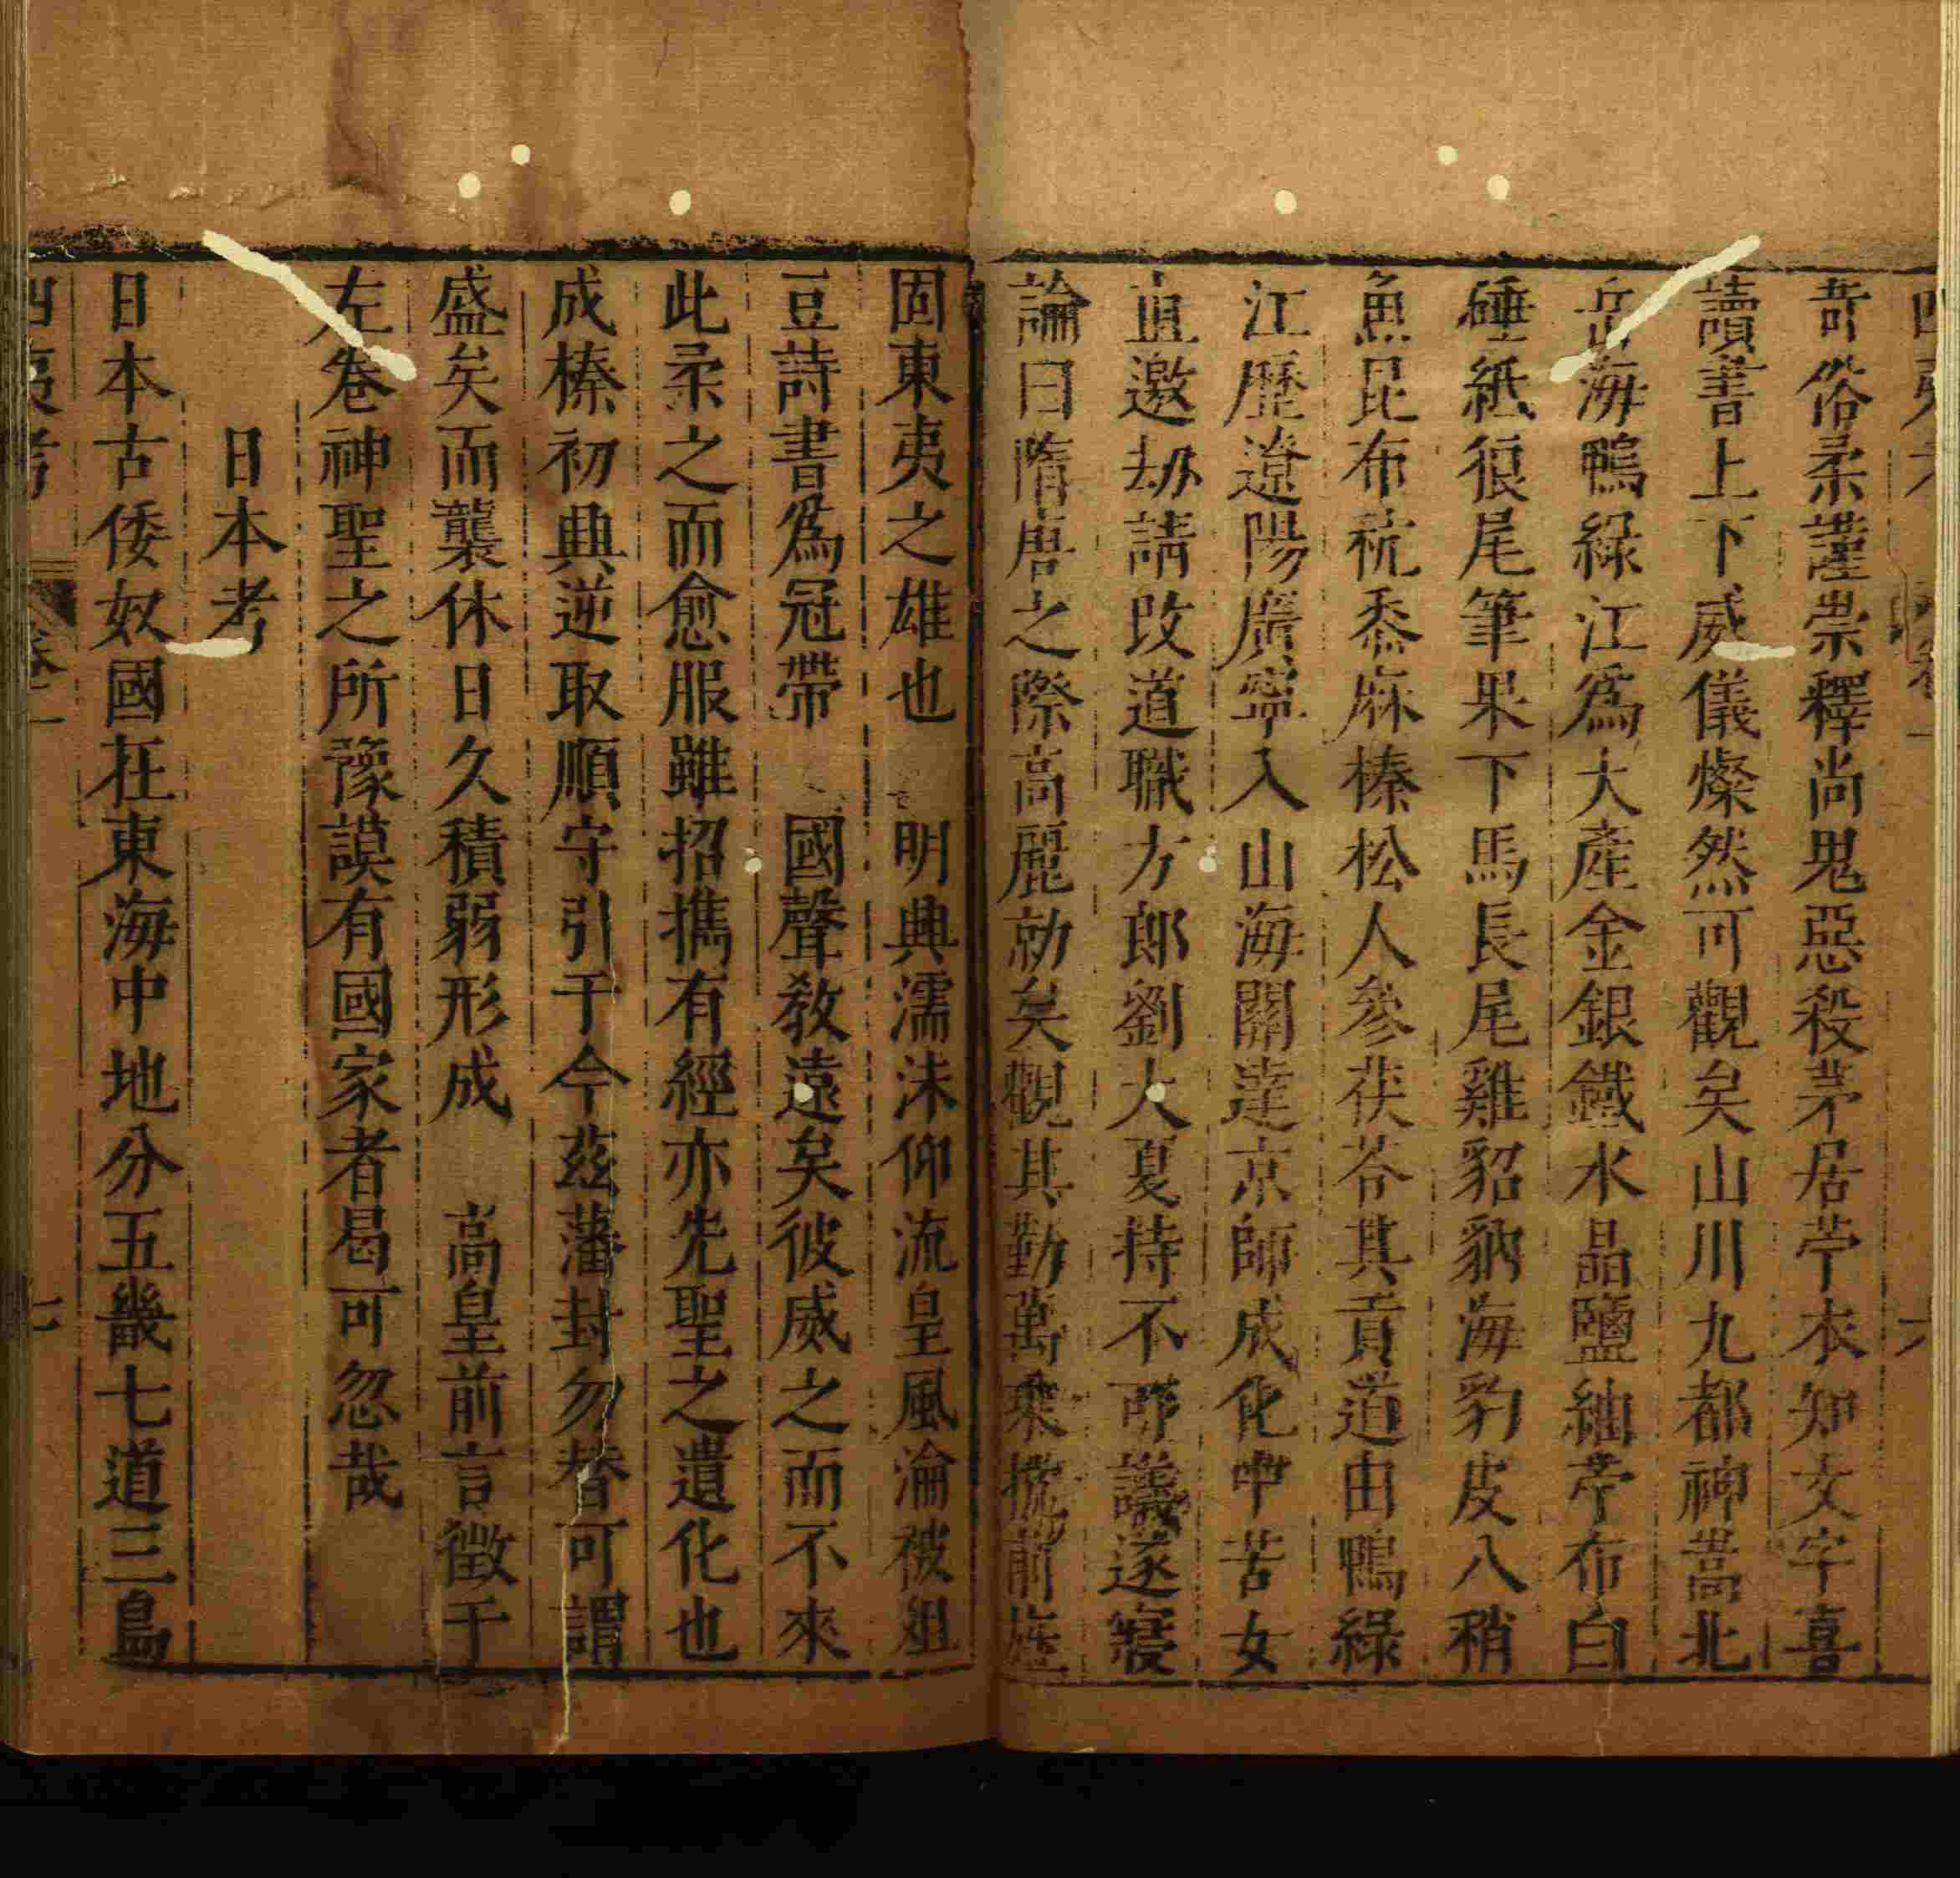 苛俗柔謹崇釋尚鬼惡殺茅居苧衣知文字喜
讀書上下威儀燦然可觀矣山川九都神嵩北
岳海鴨綠江爲大產金銀鐵水晶鹽紬苧布白
硾紙狼尾筆果下馬長尾雞貂豽海豹皮八稍
魚昆布秔黍麻榛松人參茯苓其貢道由鴨綠
江歷遼陽廣寧入山海關達京師成化中苦女
直邀劫請改道職方郎劉大夏持不可議遂寢
論曰隋唐之際高麗勍矣觀其勤萬乘撓前旌
固東夷之雄也 明興濡沬仰流皇風淪被俎
豆詩書爲冠帶 國聲敎遠矣彼威之而不來
此柔之而愈服雖招攜有經亦先聖之遺化也
成榛初興逆取順守引于今茲藩封勿替可謂
盛矣而襲休日久積弱形成 高皇前言徵于
左卷神聖之所豫謨有國家者曷可忽哉
日本考
日本古倭奴國在東海中地分五畿七道三島
四夷考 卷二 七